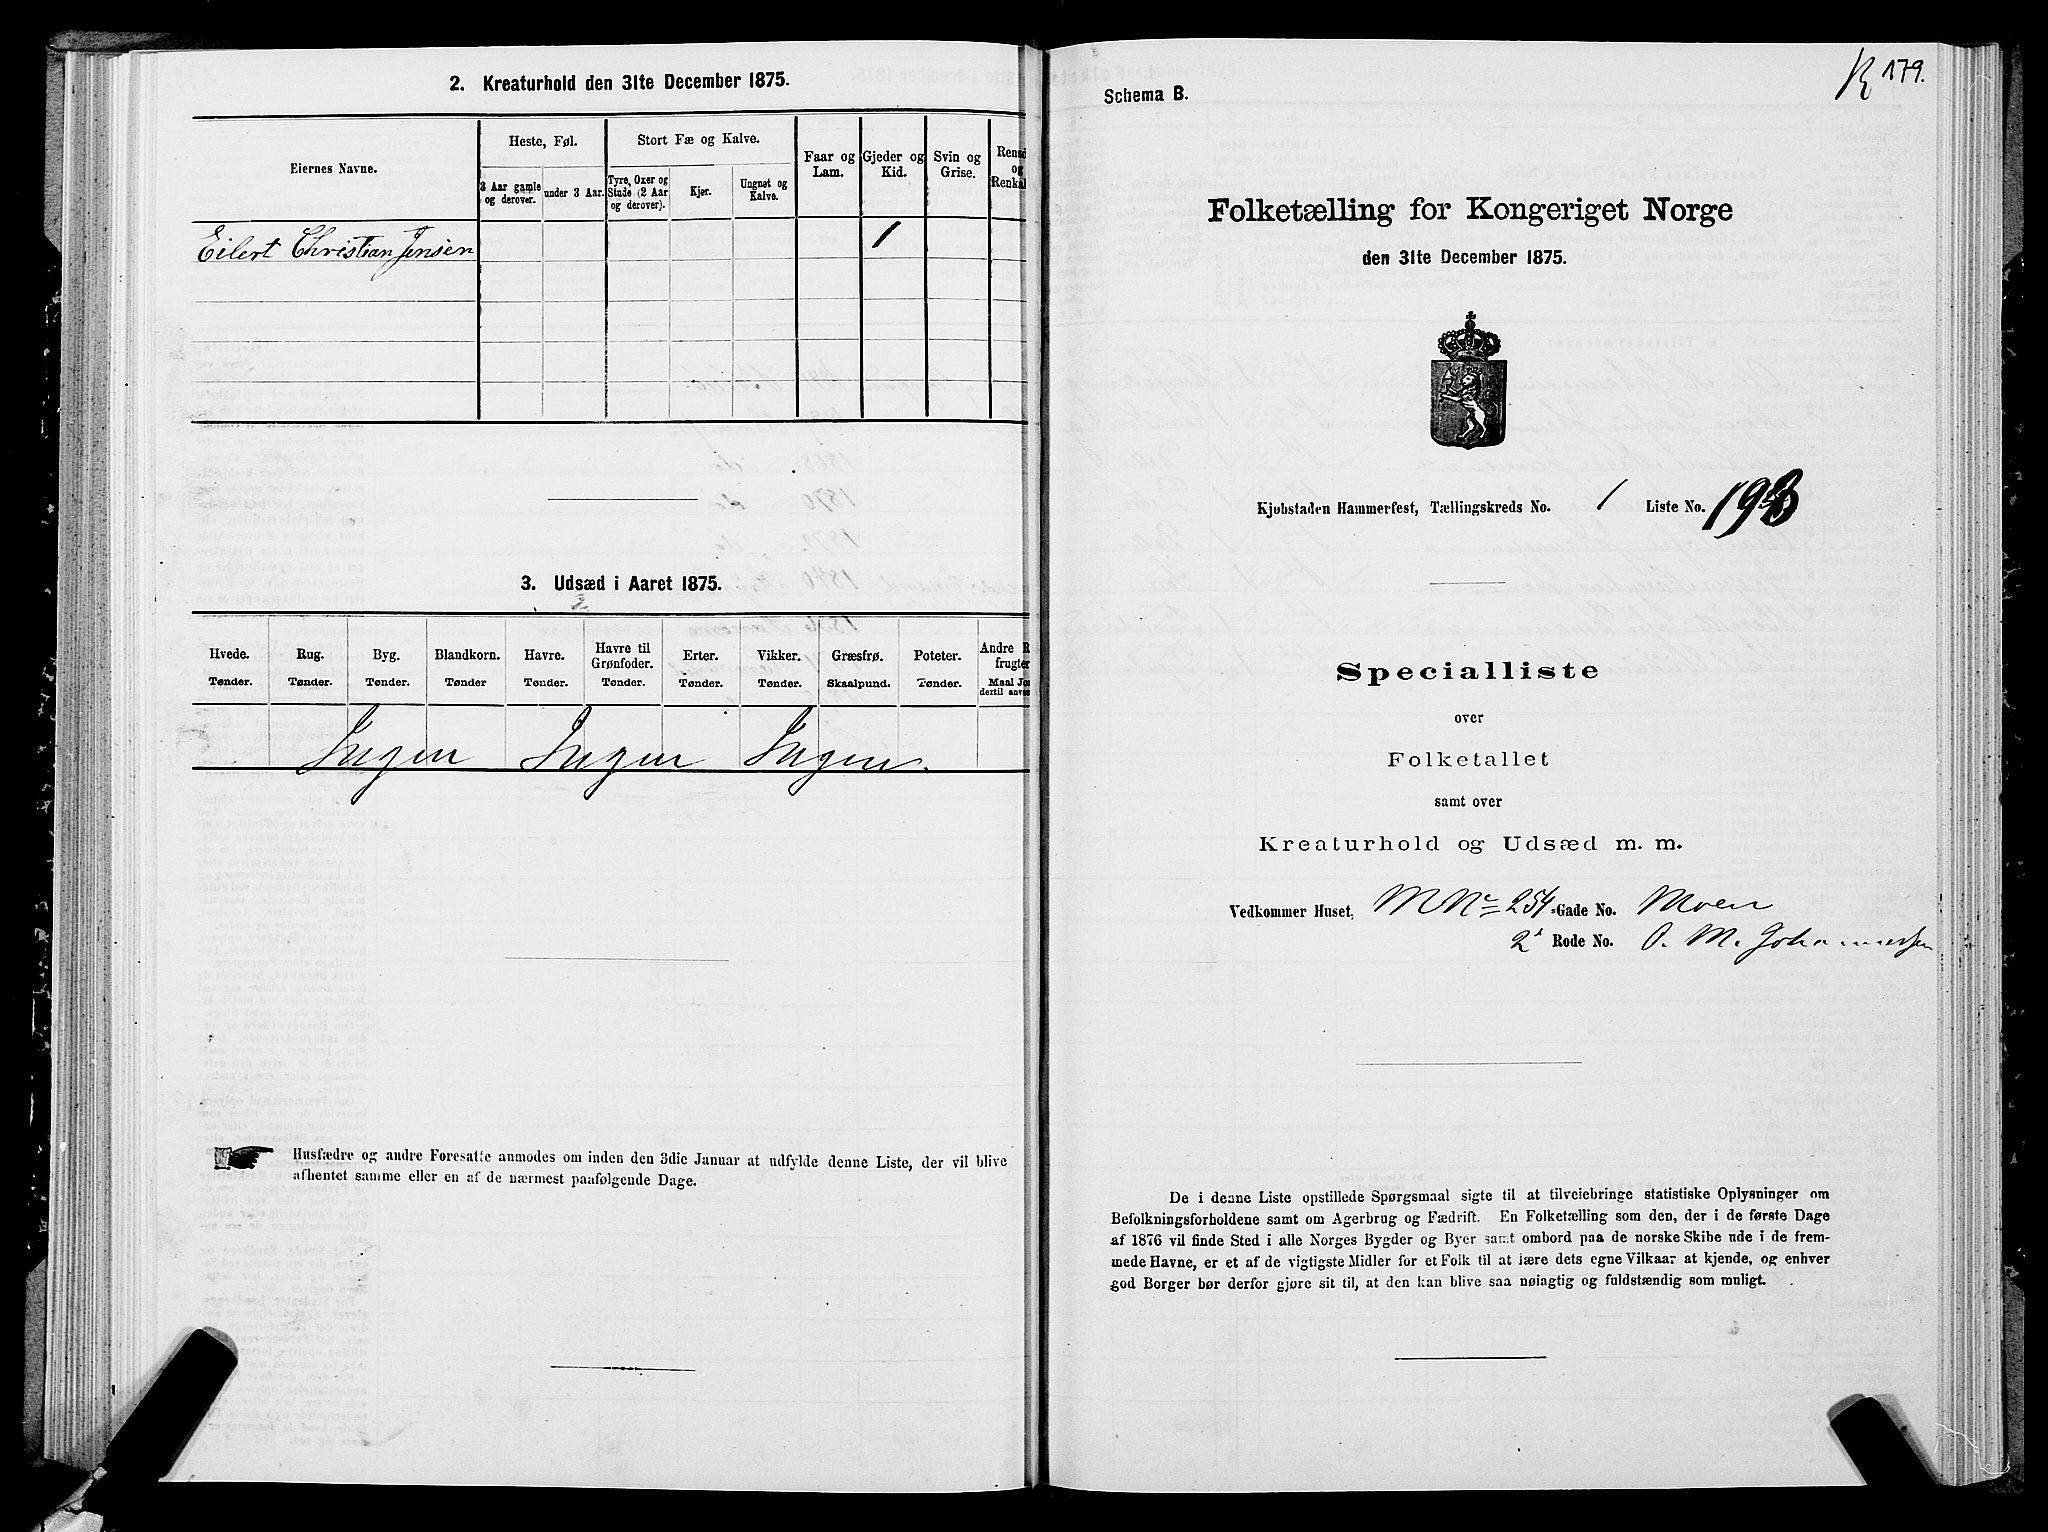 2. Kreaturhold den 31te December 1875.
Eiernes Navne.
Heste, Føl.
3 Aar gamle og derover.
under 3 Aar.
Stort Fæ og Kalve.
Tyre, Oxer og Stude (2 Aar og derover).
Kjør.
Ungnøt og Kalve.
Faar og Lam.
Gjeder og Kid.
Svin og Grise.
Eilert Christian Jensen 1
3. Udsæd i Aaret 1875.
Hvede. Rug. Byg. Blandkorn. Havre. Havre til Grønfoder. Erter. Vikker. Græsfrø. Poteter. Andre
Tønder. Tønder. Tønder. Tønder Tønder. Tønder. Tønder. Tønder. Skaalpund. Tønder. Maal
Ingen Ingen Ingen.
Husfædre og andre Foresatte anmodes om inden den 3die Januar at udfylde denne Liste, der vil blive
afhentet samme eller en af de nærmest paafølgende Dage.
179.
Schema B.
Folketælling for Kongeriget Norge
den 31te December 1875.
Kjøbstaden Hammerfest, Tællingskreds No. 1 Liste No.
Specialliste
over
Folketallet
samt over
Kreaturhold og Udsæd m. m.
Vedkommer Huset, MNo 254 Gade No. Moen
2 Rode No. O. M. Johannessen
De i denne Liste opstillede Spørgsmaal sigte til at tilveiebringe statistiske Oplysninger om
Befolkningsforholdene samt om Agerbrug og Fædrift. En Folketælling som den, der i de første Dage
af 1876 vil finde Sted i alle Norges Bygder og Byer samt ombord paa de norske Skibe ude i de frem-
mede Havne, er et af de vigtigste Midler for et Folk til at lære dets egne Vilkaar at kjende, og enhver
god Borger bør derfor gjøre sit til, at den kan blive saa nøiagtig og fuldstændig som muligt.